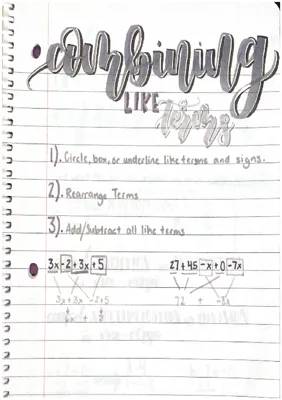 combining
LIKE terms
1). Circle, box, or underline like terms and signs.
2). Rearrange Terms
3). Add/Subtract all like terms
3x -2 +3x +5
27 + 45 -x +0 -7x
3x+3x -2+5
72 + -8x
6x + 3